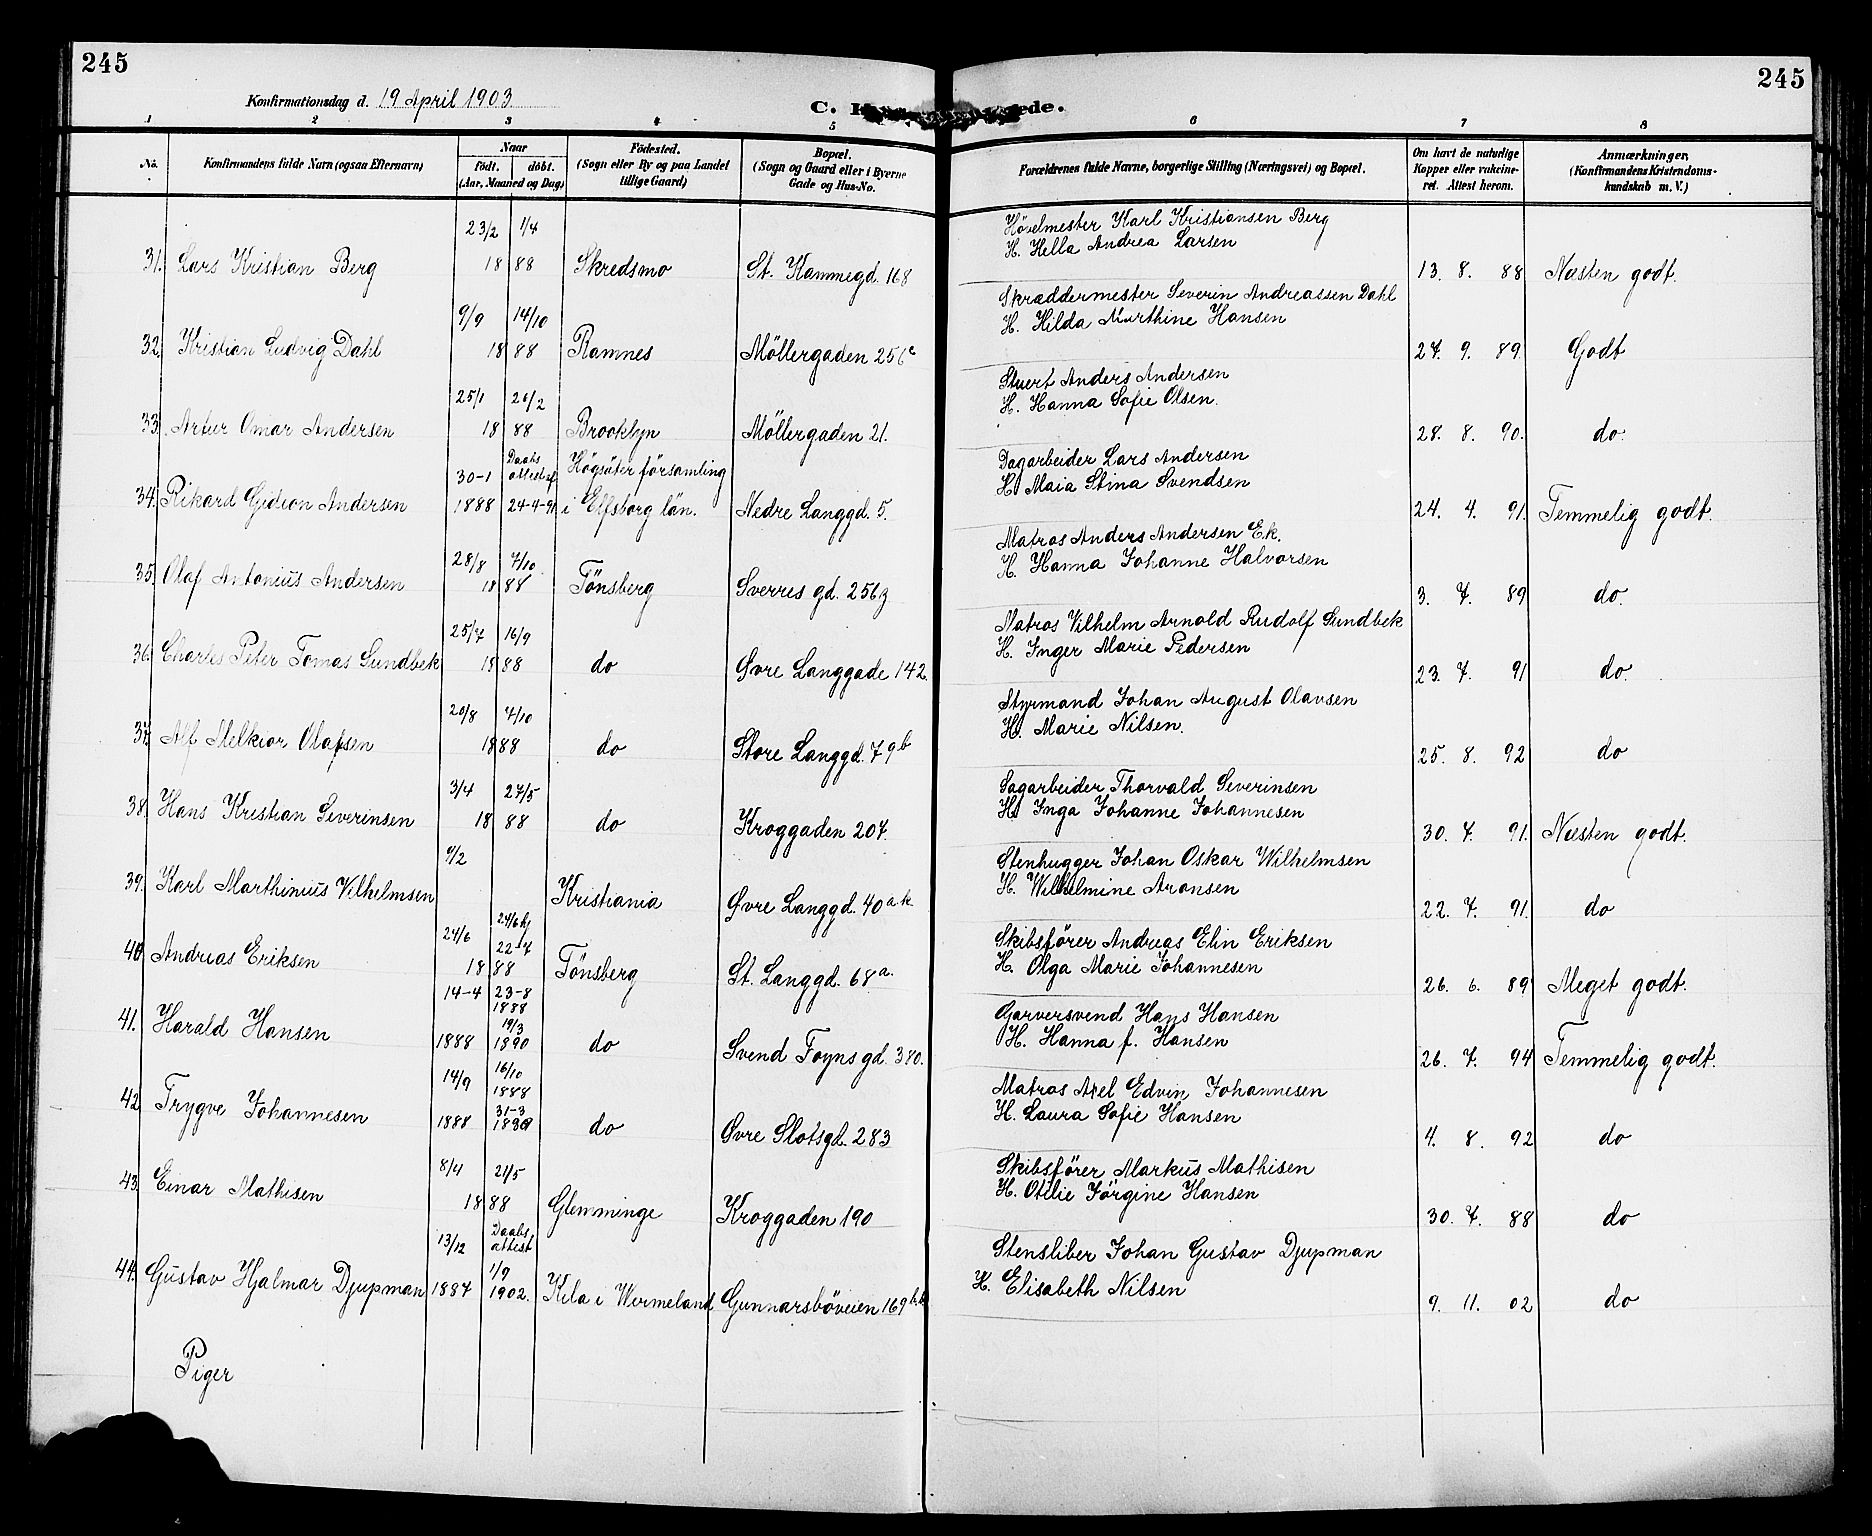 245
245
Konfirmationsdag d. 19 April 1903
C. ede.
1 2 3 4 5 6 7 8
No.
Konfirmandens fulde Navn (ogsaa Efternavn)
Naar
födt. döbt.
(Aar, Maaned og Dag)
Födested.
(Sogn eller By og paa Landet
tillige Gaard)
Bopæl.
(Sogn og Gaard eller i Byerne
Gade og Hus-No.
Forældrenes fulde Navne, borgerlige Stilling (Næringsvei) og Bopæl.
Om havt de naturlige
Kopper eller vakcine-
ret. Attest herom.
Anmærkninger.
(Konfirmandens Kristendoms-
kundskab m. V.)
23/2 1/4 Hövelmester Karl Kristiansen Berg
H. Hella Andrea Larsen
31. Lars Kristian Berg 18 88 Skredsmo St. Kammegd. 168 13. 8. 88 Næsten godt.
9/9 14/10 Skræddermester Severin Andreassen Dahl
H. Hilda Marthine Hansen
32. Kristian Ludvig Dahl 18 88 Ramnes Möllergaden 256c 27. 9. 89. Godt
25/1 26/2 Stuert Anders Andersen
H. Hanna Sofie Olsen.
33. Artur Omar Andersen 18 88 Brooklyn Möllergaden 21. 28. 8. 90. do.
30-1 Daabs attest af Högsäter församling Dagarbeider Lars Andersen
H. Maia Stina Svendsen
34. Rikard Gidion Andersen 1888 24-4-91 i Elfsborg län. Nedre Langgd. 5. 24. 4. 91. Temmelig godt.
28/8 7/10 Matros Anders Andersen Ek.
H. Hanna Johanne Halvorsen
35. Olaf Antonius Andersen 18 88 Tönsberg Sverres gd. 256g 3. 7. 89 do.
25/7 16/9 Matros Vilhelm Arnold Rudolf Sundbek
H. Inger Marie Pedersen
36. Charles Peter Tomas Sundbek 18 88 do Øvre Langgade 142. 23. 7. 91 do.
20/8 7/10 Styrmand Johan August Olavsen
H. Marie Nilsen.
37. Alf Melkior Olafsen 18 88 do Store Langgd. 79b 25. 8. 92 do
3/4 27/5 Sagarbeider Thorvald Severinsen
H. Inga Johanne Johannesen
38. Hans Kristian Severinsen 18 88 do Kroggaden 207. 30. 7. 91. Næsten godt.
9/2 Stenhugger Johan Oskar Wilhelmsen
H. Wilhelmine Aronsen
39. Karl Marthinius Vilhelmsen Kristiania Øvre Langgd. 40a.k 22. 7. 91. do
24/6 24/6 hj 22-7 Skibsförer Andreas Elin Eriksen
H. Olga Marie Johannesen
40. Andreas Eriksen 18 88 Tönsberg St. Langgd. 68a. 26. 6. 89 Meget godt.
14-4 23-8 1888 Garversvend Hans Hansen
H. Hanna f. Hansen
41. Harald Hansen 1888 19/3 1890 do Svend Foyns gd. 380. 26. 7. 94 Temmelig godt.
14/9 16/10 1888 Matros Axel Edvin Johannesen
H. Laura Sofie Hansen
42 Trygve Johannesen 1888 31-3 1890 do Øvre Slotsgd. 283 4. 8. 92 do
8/4 21/5 Skibsförer Markus Mathisen
H. Otilie Jörgine Hansen
43. Einar Mathisen 18 88 Glemminge Kroggaden 190 30. 7. 88 do
13/12 Daabs attest Stensliber Johan Gustav Djupman
H. Elisabeth Nilsen
44. Gustav Hjalmar Djupman 1887 1/9 1902. Kila i Wermeland Gunnarsböveien 169 9. 11. 02 do
Piger